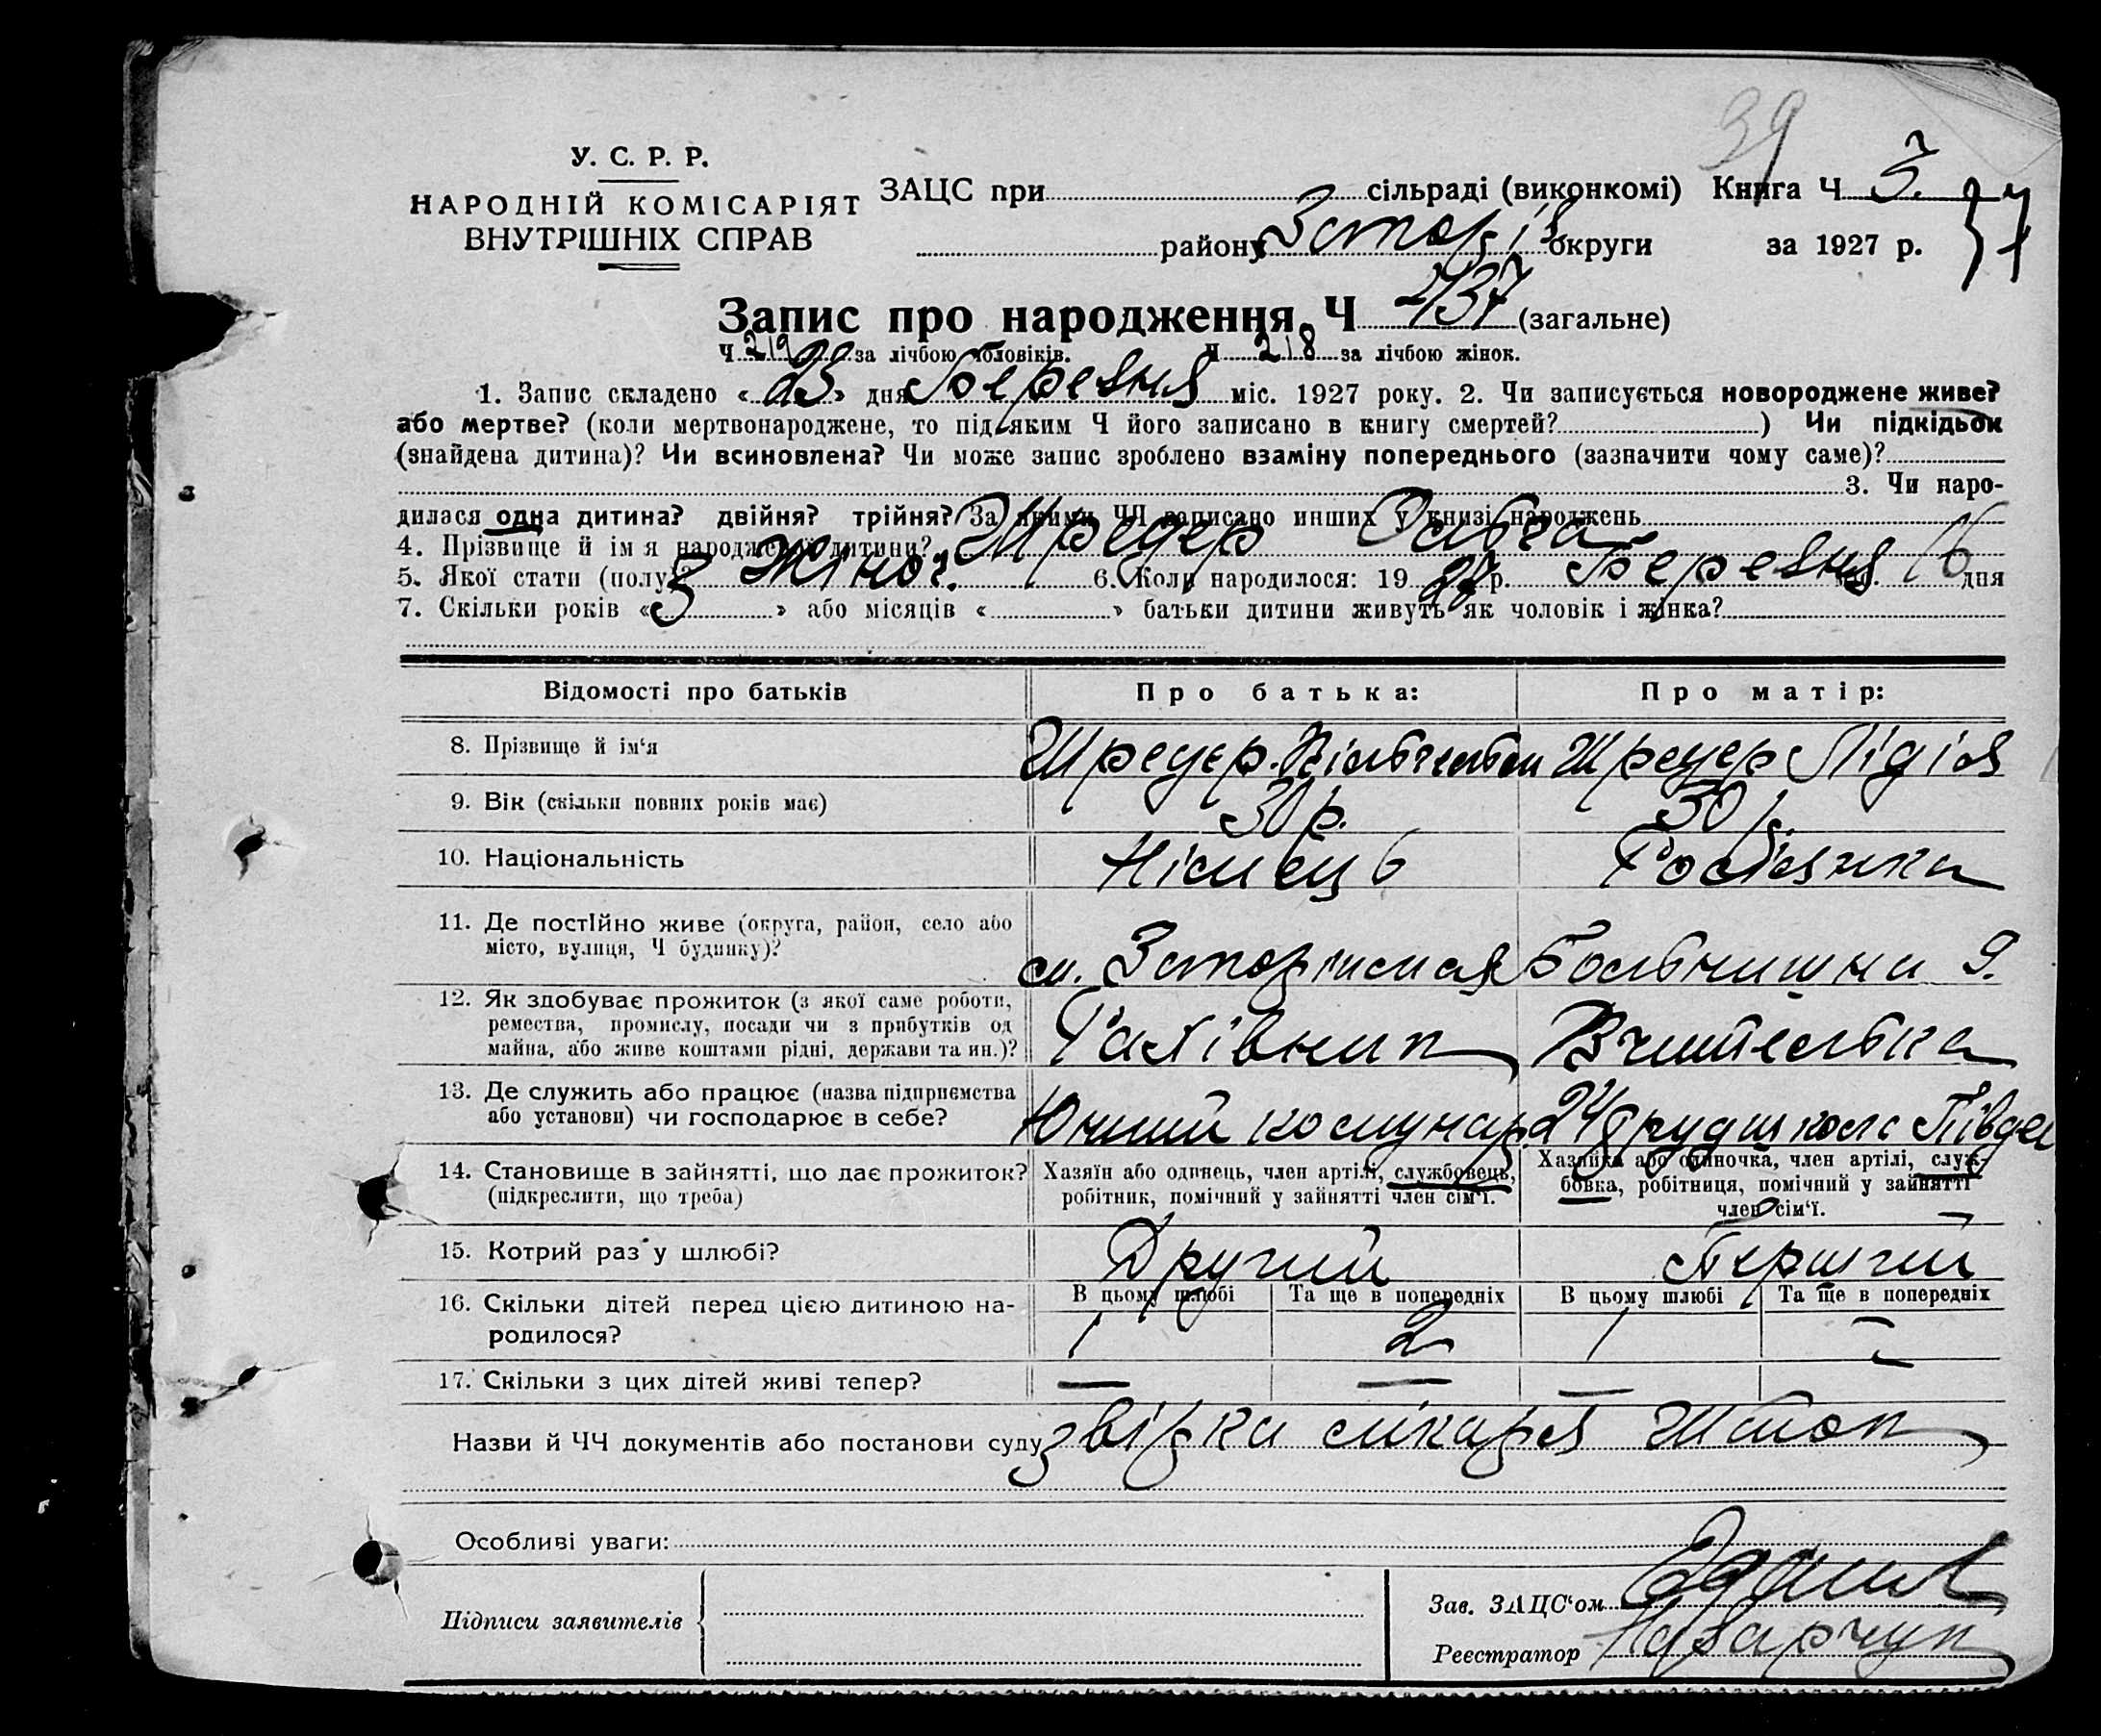 39
У. С. Р. Р.
НАРОДНІЙ КОМІСАРІЯТ
ВНУТРІШНІХ СПРАВ
ЗАЦС при сільраді (виконкомі) Книга Ч 3.
району округи за 1927 р. 37
Запис про народження Ч 437 (загальне)
Ч 219 за лічбою чоловіків. Ч 218 за лічбою жінок.
1. Запис складено «23» дня Березня міс. 1927 року. 2. Чи записується новороджене живе?
або мертве? (коли мертвонароджене, то під яким Ч його записано в книгу смертей? ) Чи підкідьок
(знайдена дитина)? Чи всиновлена? Чи може запис зроблено взаміну попереднього (зазначити чому саме)?
3. Чи наро-
дилася одна дитина? двійня? трійня? За якими ЧЧ записано инших у книзі народжень
4. Прізвище й ім я народженої дитини? Шредер
5. Якої статі (полу)? Жіноч. 6. Коли народилося: 1927 р. Березня міс. 16 дня
7. Скільки років «3» або місяців « » батьки дитини живуть як чоловік і жінка?
Відомості про батьків Про батька: Про матір:
8. Прізвище й ім‘я Шредер Вільгельм Шредер Лідія
9. Вік (скільки повних років має) 30 р. 30 р.
10. Національність Німець Росіянка
11. Де постійно живе (округа, район, село або
місто, вулиця, Ч будинку)? м. Больнична 9.
12. Як здобуває прожиток (з якої саме роботи,
ремества, промислу, посади чи з прибутків од
майна, або живе коштами рідні, держави та ин.)? Рахівник Вчителька
13. Де служить або працює (назва підприємства
або установи) чи господарює в себе? Юний комунар 24 трудшкола Півден
14. Становище в зайнятті, що дає прожиток?
(підкреслити, що треба)
Хазяїн або одинець, член артілі, службовець,
робітник, помічний у зайнятті член сім‘ї.
Хазяйка або одиночка, член артілі, служ-
бовка, робітниця, помічний у зайнятті
член сім‘ї.
15. Котрий раз у шлюбі? Другий Перший
В цьому шлюбі Та ще в попередніх В цьому шлюбі Та ще в попередніх
16. Скільки дітей перед цією дитиною на-
родилося? 1 2 1 —
17. Скільки з цих дітей живі тепер? — — —
Назви й ЧЧ документів або постанови суду звірка лікаря
Особливі уваги:
Підписи заявителів
Зав. ЗАЦС‘ом
Реєстратор Назарчук